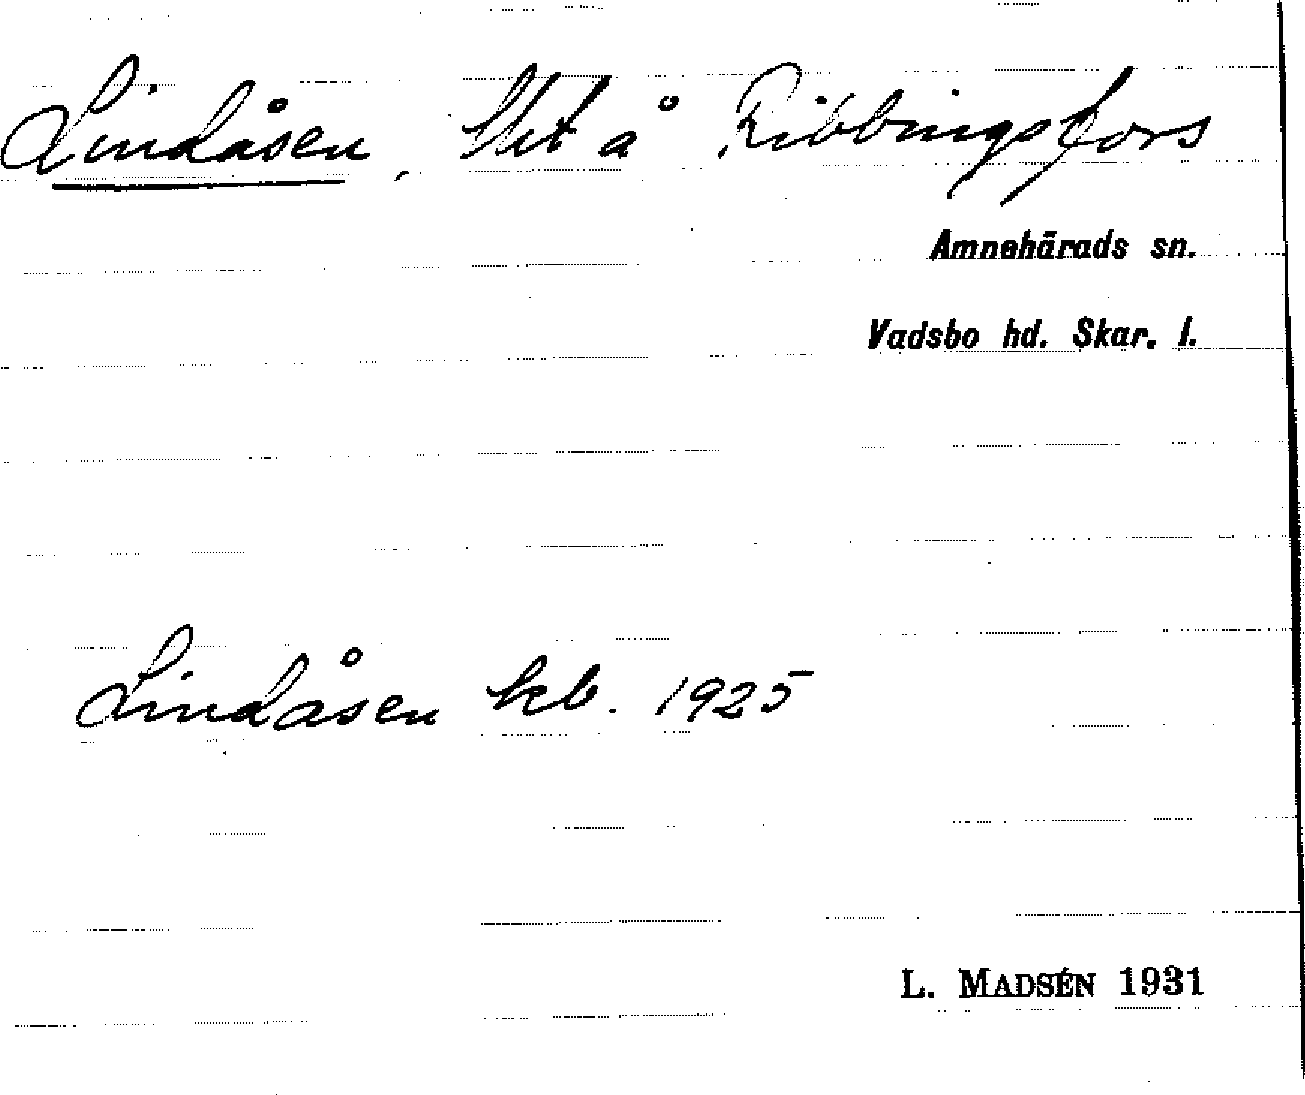 Lindåsen, tht å Ribbingsfors
Amnehärads sn.
Vadsbo hd. Skar. l.
Lindåsen kb. 1925
L. MADSÉN 1931